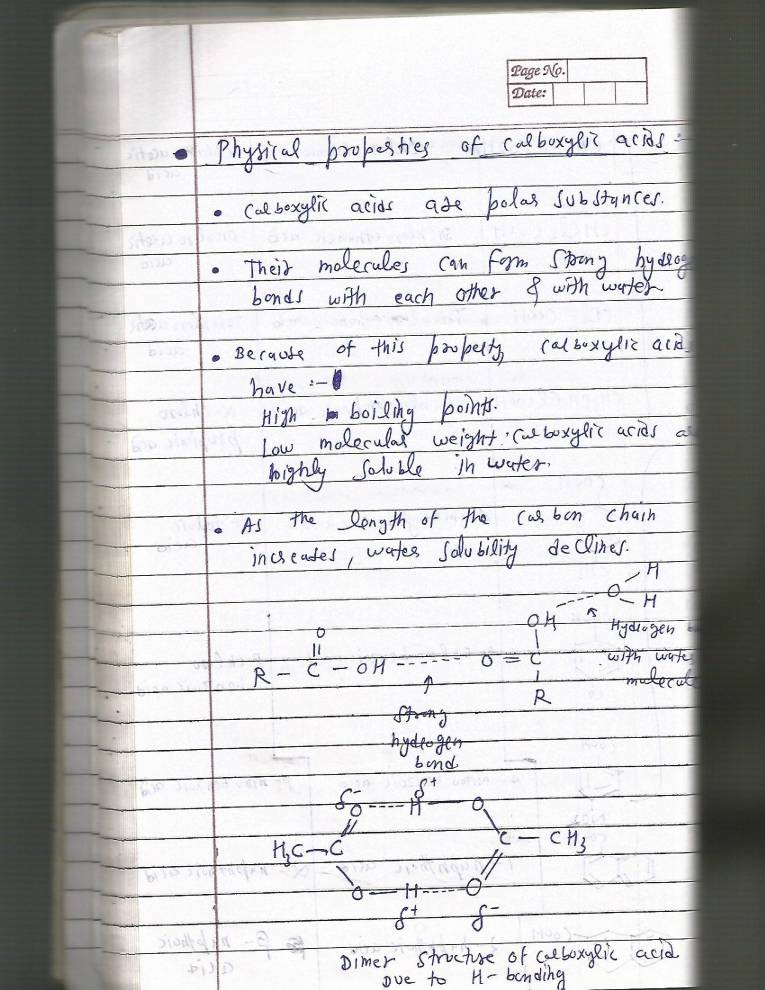 Page No.
Date:
• Physical properties of carboxylic acids :-
• Carboxylic acids are polar substances.
• Their molecules can form strong hydrog
bonds with each other & with water
• Because of this property, carboxylic acid
have :-
High boiling points.
Low molecular weight carboxylic acids a
highly soluble in water.
• As the length of the carbon chain
increases, water solubility declines.
H
O
H
OH
Hydrogen
O
R - C - OH ------- O = C
with wate
molecul
R
Strong
hydrogen
bond
δ- δ+
O --- H — O
H3C - C
C - CH3
O - H ---- O
δ+ δ-
Dimer structure of carboxylic acid
Due to H-bonding